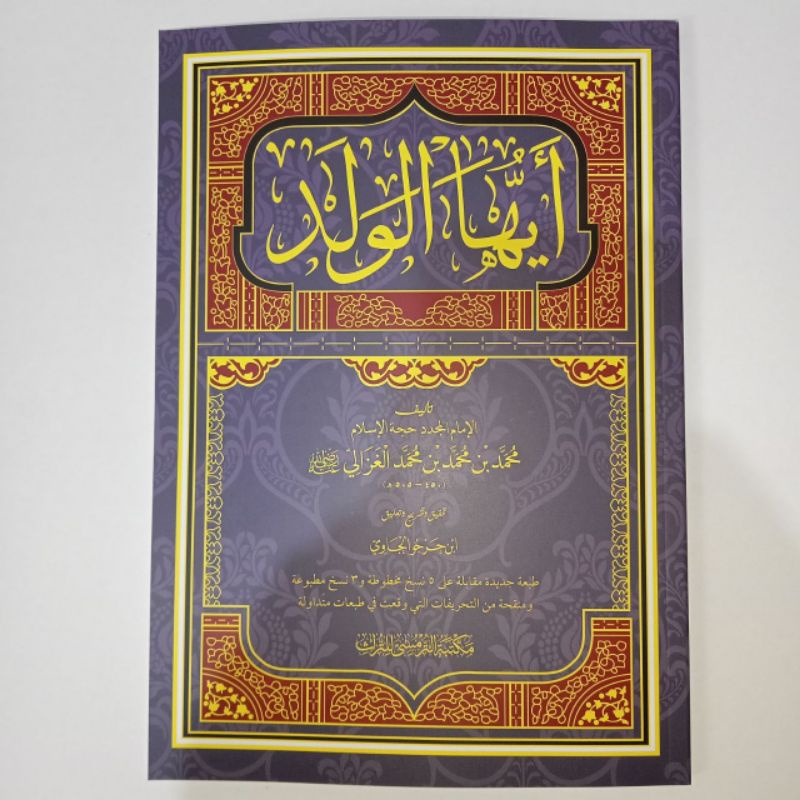 أَيُّهَا الوَلَدَ
تأليف
الإمام المجدد حجة الإسلام
مُحَمَّد بْن مُحَمَّد بْن مُحَمَّد الْغَزَالِي رضي الله عنه
(٤٥٠ – ٥٠٥ ھ)
تحقيق وتخريج وتعليق
ابن حرجو الجاوي
طبعة جديدة مقابلة على ٥ نسخ مخطوطة و٣ نسخ مطبوعة
ومنقحة من التحريفات التي وقعت في طبعات متداولة
مكتبة الترمسي للتراث